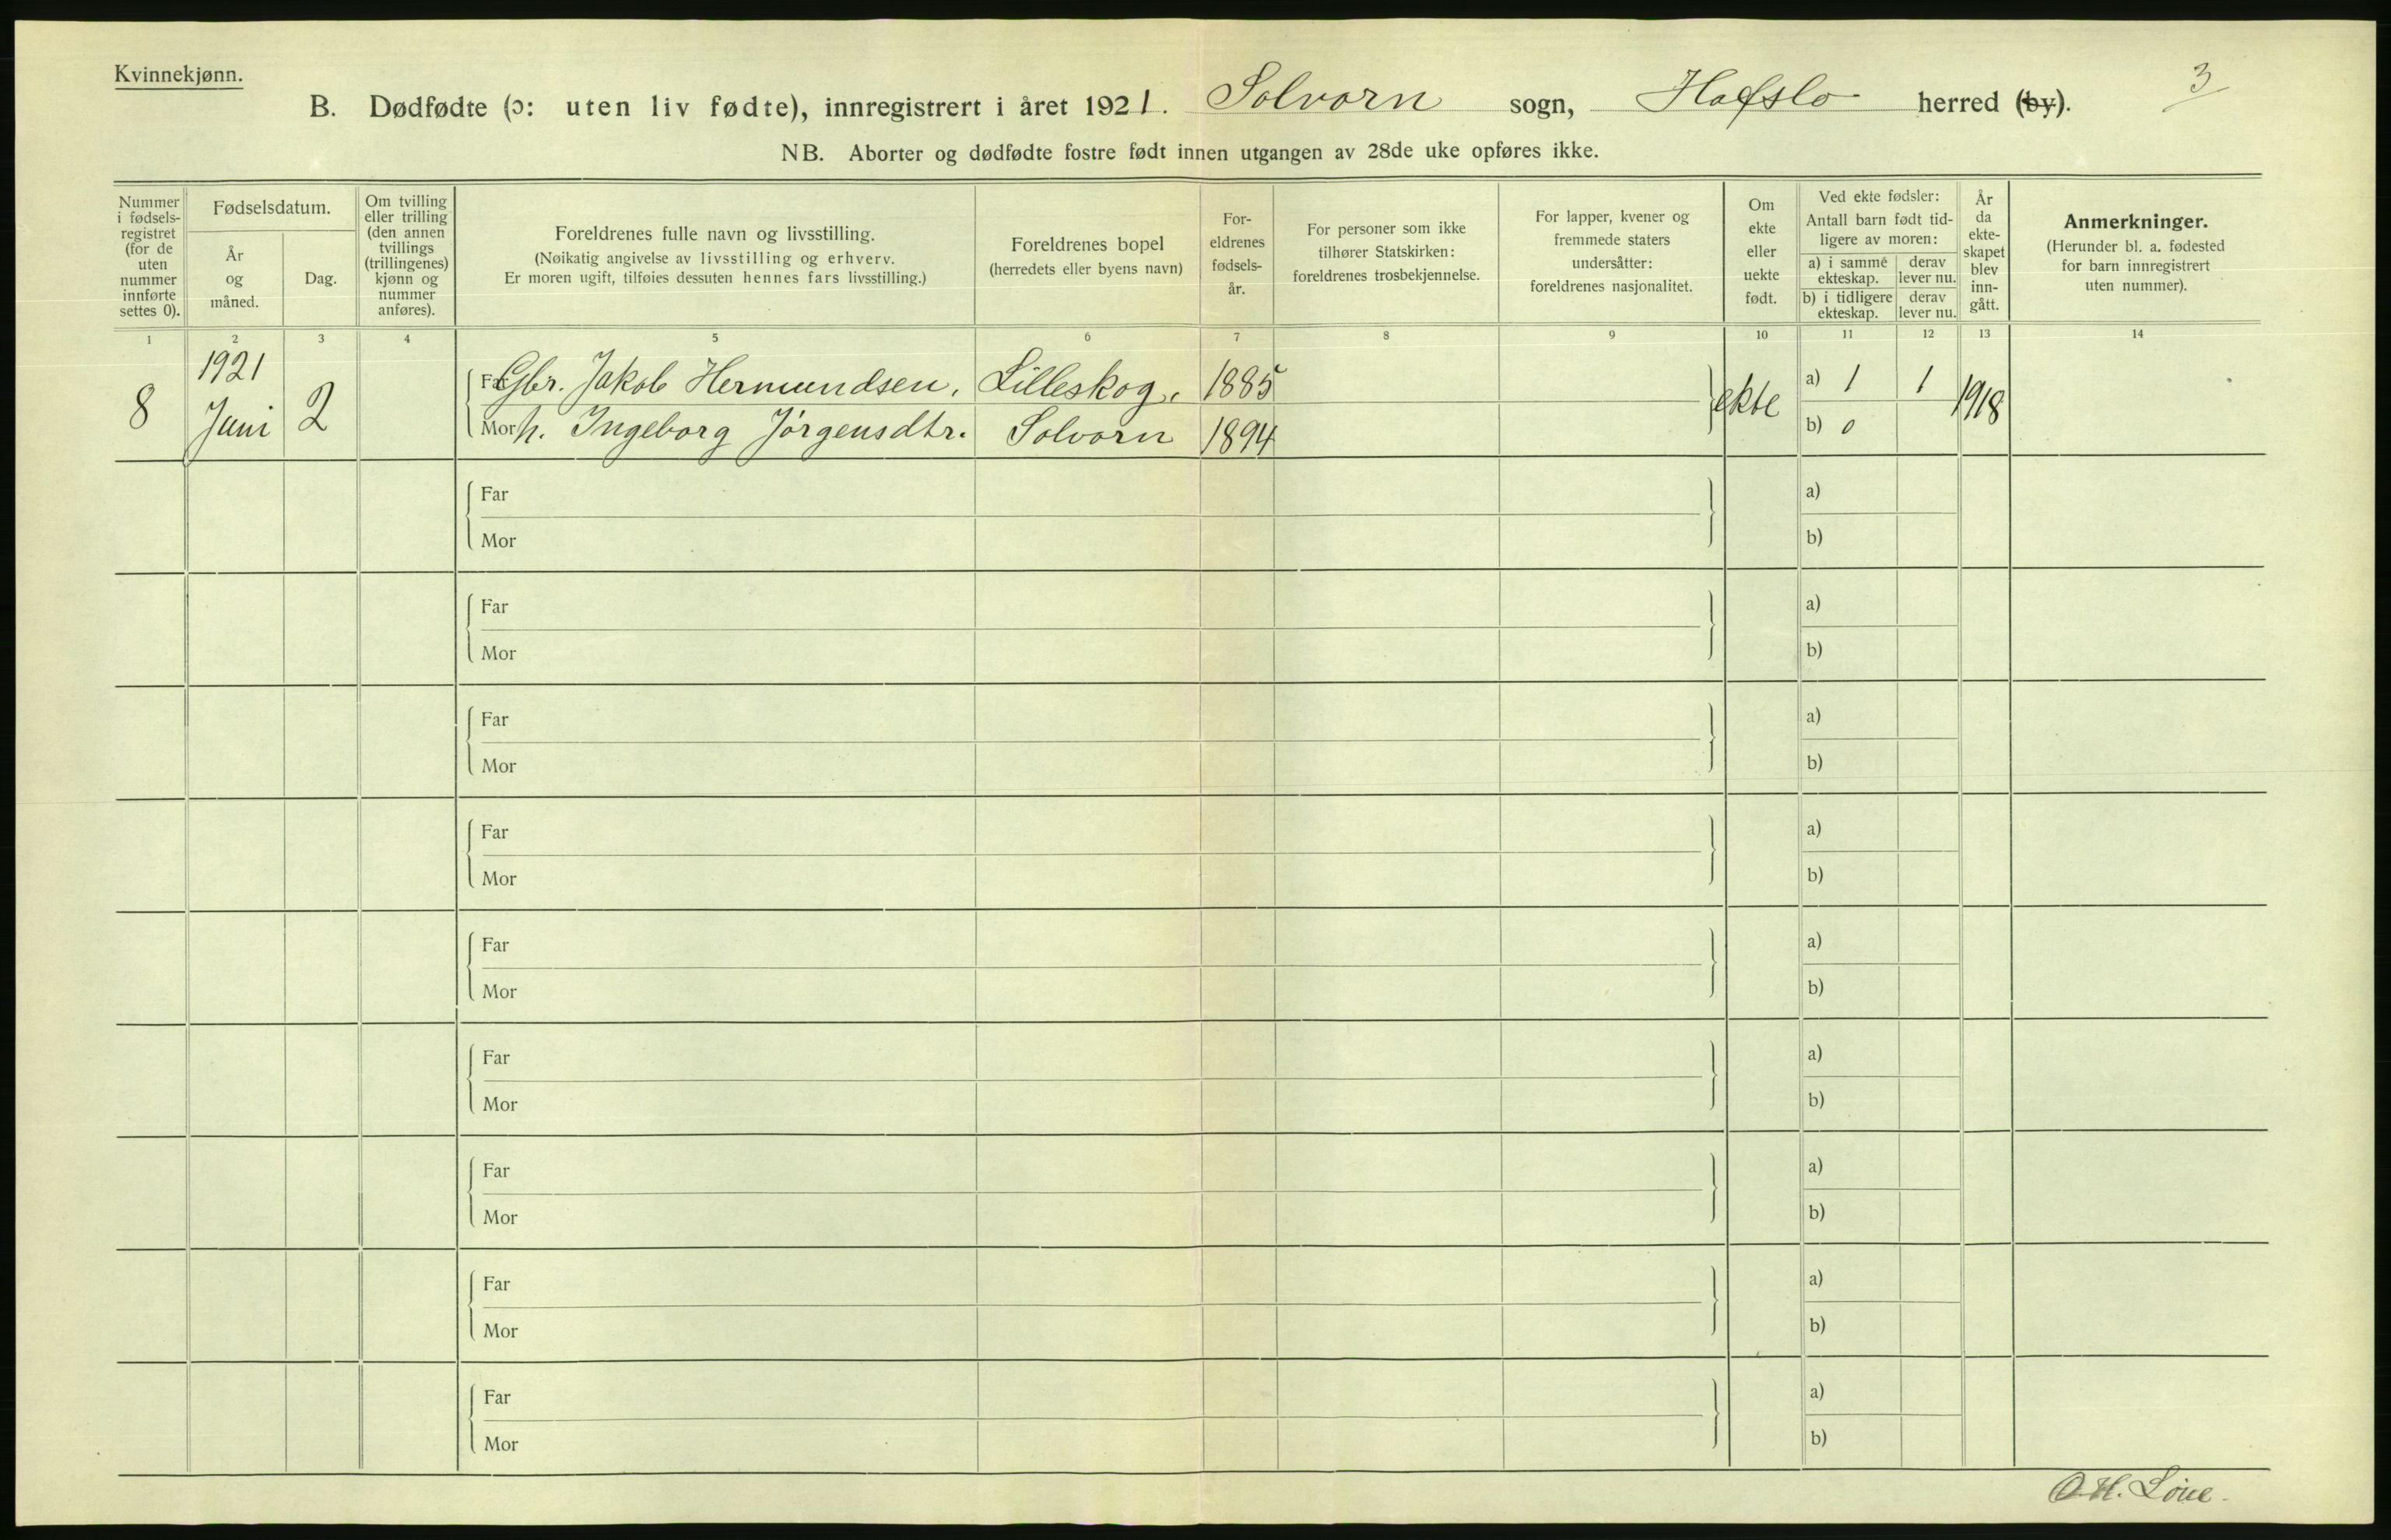 Kvinnekjønn.
B. Dødfødte (ɔ: uten liv fødte), innregistrert i året 1921. Solvorn sogn, Hafslo herred (by).
3
NB. Aborter og dødfødte fostre født innen utgangen av 28de uke opføres ikke.
Nummer
i fødsels-
registret
(for de
uten
nummer
innførte
settes 0).
Fødselsdatum.
År
og
måned.
Dag.
Om tvilling
eller trilling
(den annen
tvillings
(trillingenes)
kjønn og
nummer
anføres).
Foreldrenes fulle navn og livsstilling.
(Nøikatig angivelse av livsstilling og erhverv.
Er moren ugift, tilføies dessuten hennes fars livsstilling.)
Foreldrenes bopel
(herredets eller byens navn)
For-
eldrenes
fødsels-
år.
For personer som ikke
tilhører Statskirken:
foreldrenes trosbekjennelse.
For lapper, kvener og
fremmede staters
undersåtter:
foreldrenes nasjonalitet.
Om
ekte
eller
uekte
født.
Ved ekte fødsler:
Antall barn født tid-
ligere av moren:
a) i samme
ekteskap.
derav
lever nu.
b) i tidligere
ekteskap.
derav
lever nu.
År
da
ekte-
skapet
blev
inn-
gått.
Anmerkninger.
(Herunder bl. a. fødested
for barn innregistrert
uten nummer).
1 2 3 4 5 6 7 8 9 10 11 12 13 14
8 1921 Juni 2
Far Gbr. Jakob Hermundsen, Lilleskog, 1885
Mor h. Ingeborg Jørgensdtr. Solvorn 1894
ekte
a) 1 1
b) 0
1918
Far a)
Mor b)
Far a)
Mor b)
Far a)
Mor b)
Far a)
Mor b)
Far a)
Mor b)
Far a)
Mor b)
Far a)
Mor b)
Far a)
Mor b)
Far a)
Mor b)